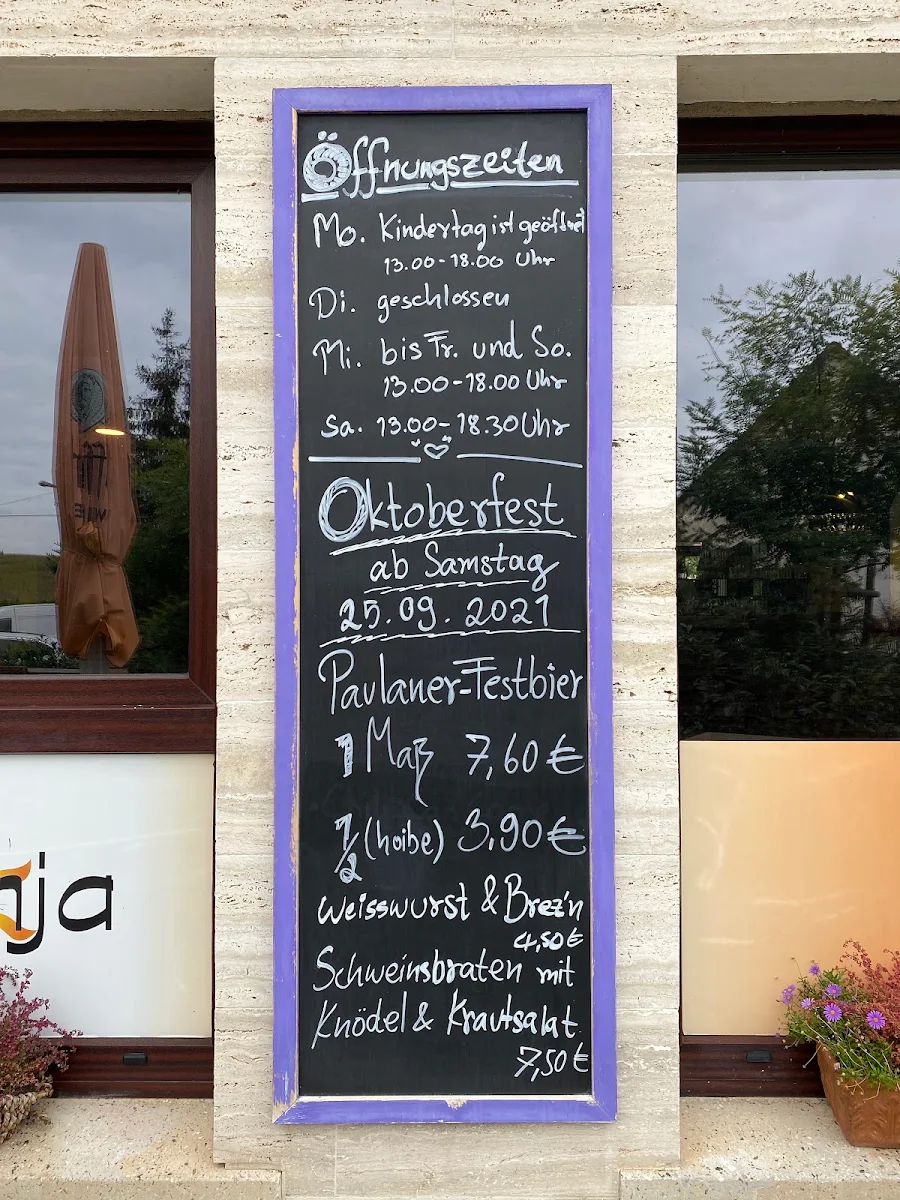 Öffnungszeiten
Mo. Kindertag ist geöffnet
13.00-18.00 Uhr
Di. geschlossen
Mi. bis Fr. und So.
13.00-18.00 Uhr
Sa. 13.00-18.30 Uhr
Oktoberfest
ab Samstag
25.09.2021
Paulaner-Festbier
1 Maß 7,60€
1/2 (hoibe) 3,90€
Weisswurst & Brez'n
4,50€
Schweinsbraten mit
Knödel & Krautsalat
7,50€
nja